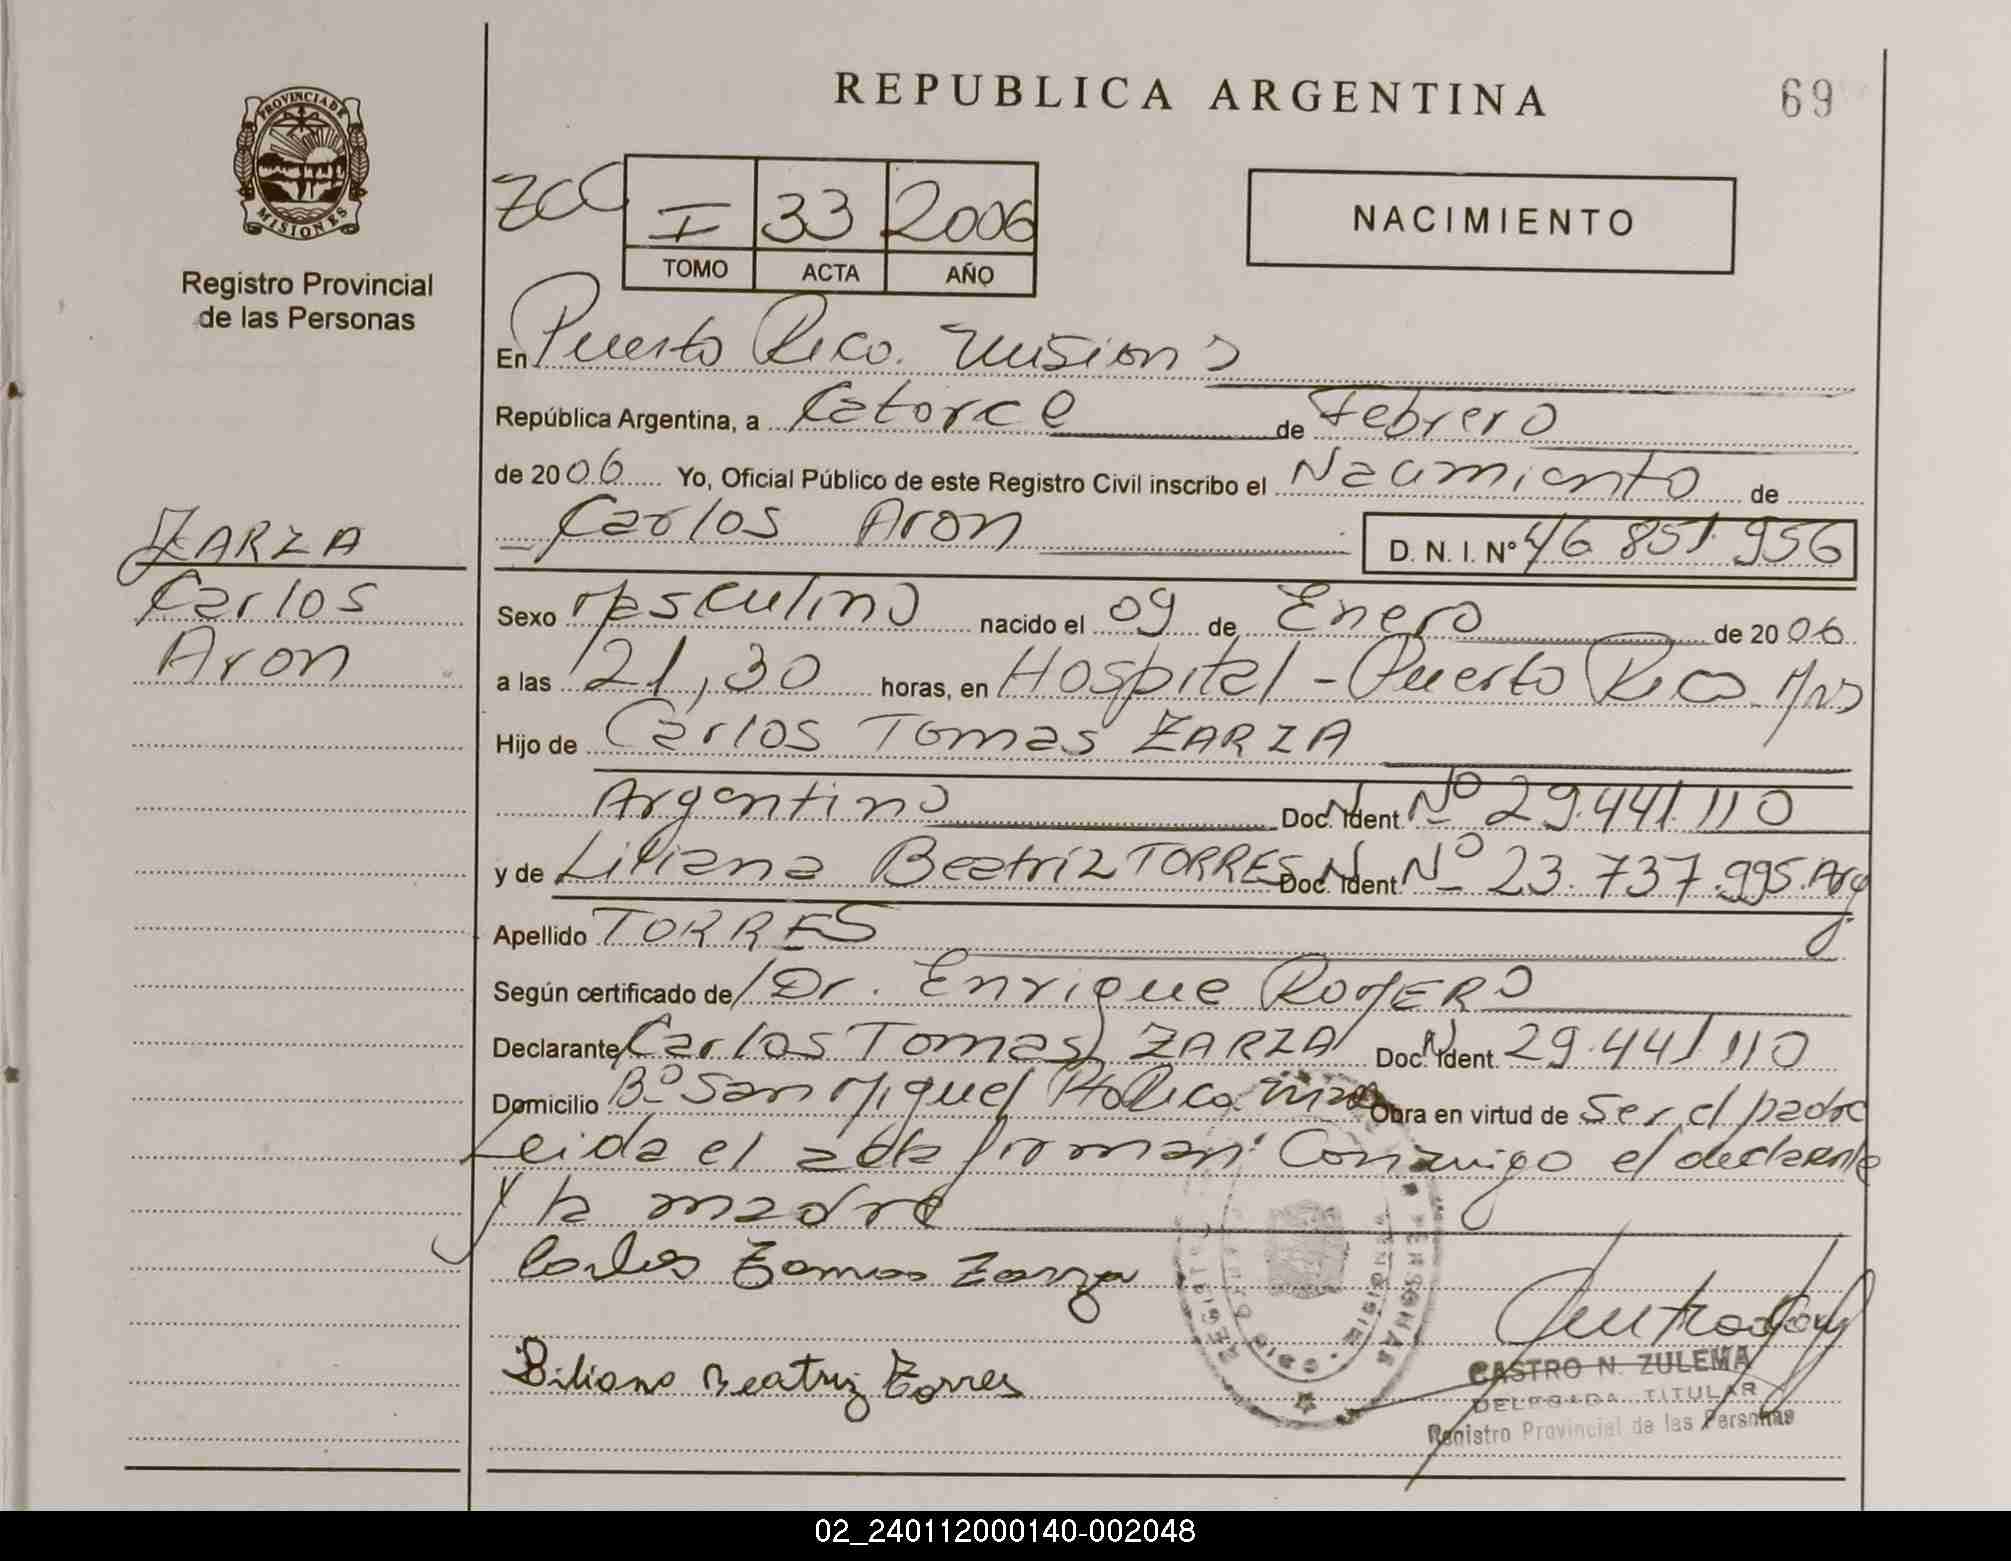 REPUBLICA ARGENTINA
69
PROVINCIA DE
MISIONES
Registro Provincial
de las Personas
I 33 2006
TOMO ACTA AÑO
NACIMIENTO
En Puerto Rico. Misiones
República Argentina, a Catorce de Febrero
de 2006 Yo, Oficial Público de este Registro Civil inscribo el Nacimiento de
Carlos Aron D. N. I. Nº 46 851.956
ZARZA
Carlos
Aron
Sexo Masculino nacido el 09 de Enero de 2006
a las 21,30 horas, en Hospital - Puerto Rico Mns
Hijo de Carlos Tomas ZARZA
Argentino Doc. Ident. Nº 29.441.110
y de Liliana Beatriz TORRES Doc. Ident. Nº 23.737.995. Arg
Apellido TORRES
Según certificado de Dr. Enrique ROMERO
Declarante Carlos Tomas ZARZA Doc. Ident. 29.441.110
Domicilio Bº San Miguel Pto Rico Mns Obra en virtud de Ser el padre
Leida el acta firman Conmigo el declarante
y la madre
Carlos Tomas Zarza
Liliana Beatriz Torres
CASTRO N. ZULEMA
DELEGADA TITULAR
Registro Provincial de las Personas
02_240112000140-002048